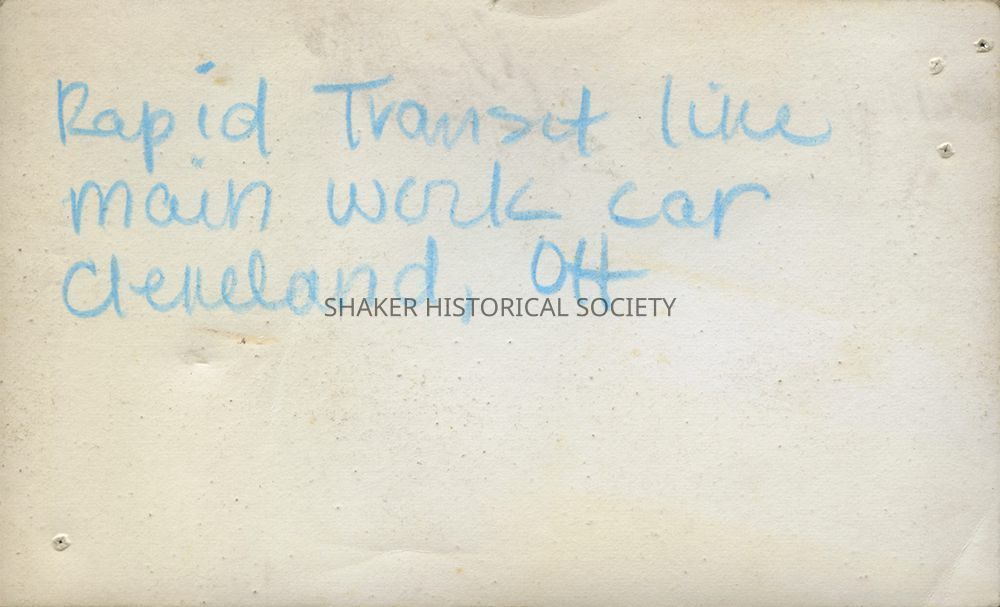 Rapid Transit line
main work car
Cleveland, OH
SHAKER HISTORICAL SOCIETY